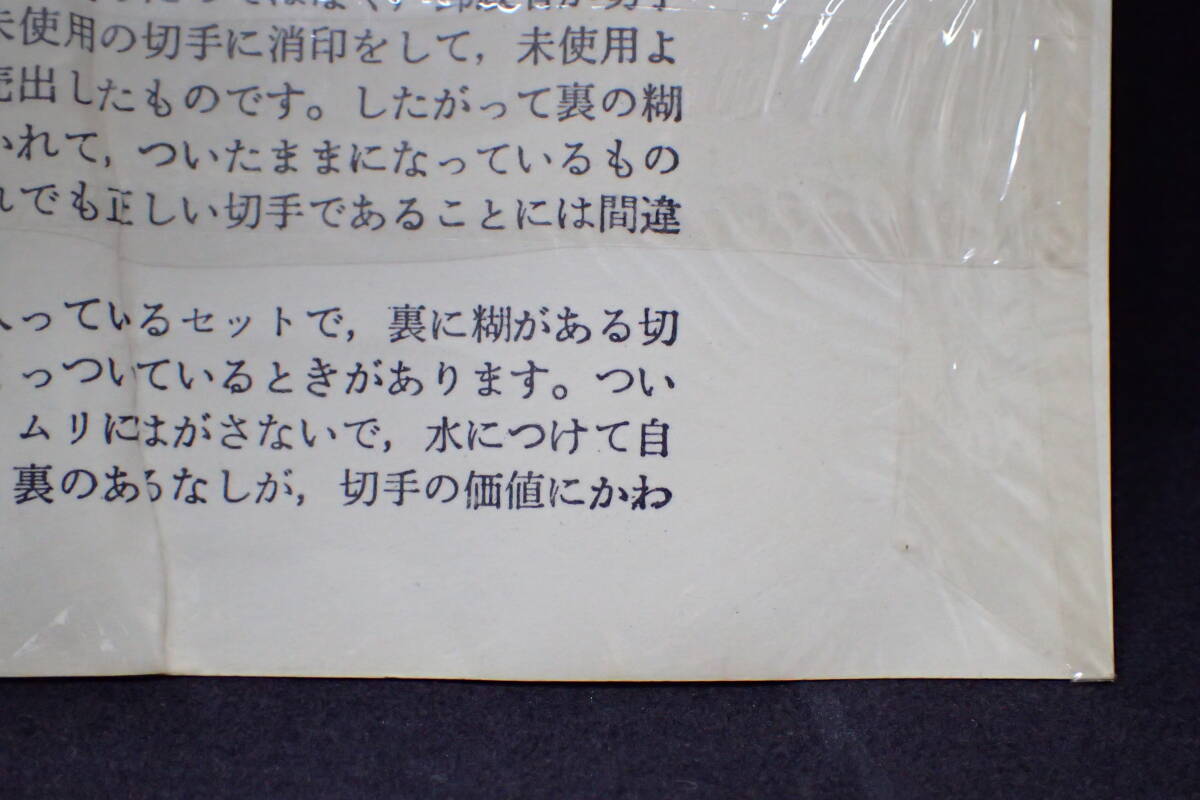 未使用の切手に消印をして，未使用よ
売出したものです。したがって裏の糊
かれて，ついたままになっているもの
れでも正しい切手であることには間違
入っているセットで，裏に糊がある切
っついているときがあります。つい
ムリにはがさないで，水につけて自
裏のあるなしが，切手の価値にかわ